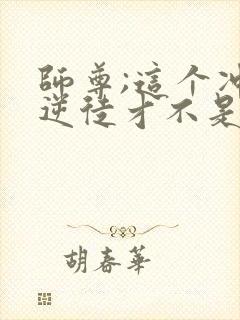 師尊;這个冲
逆徒才不是
胡春華